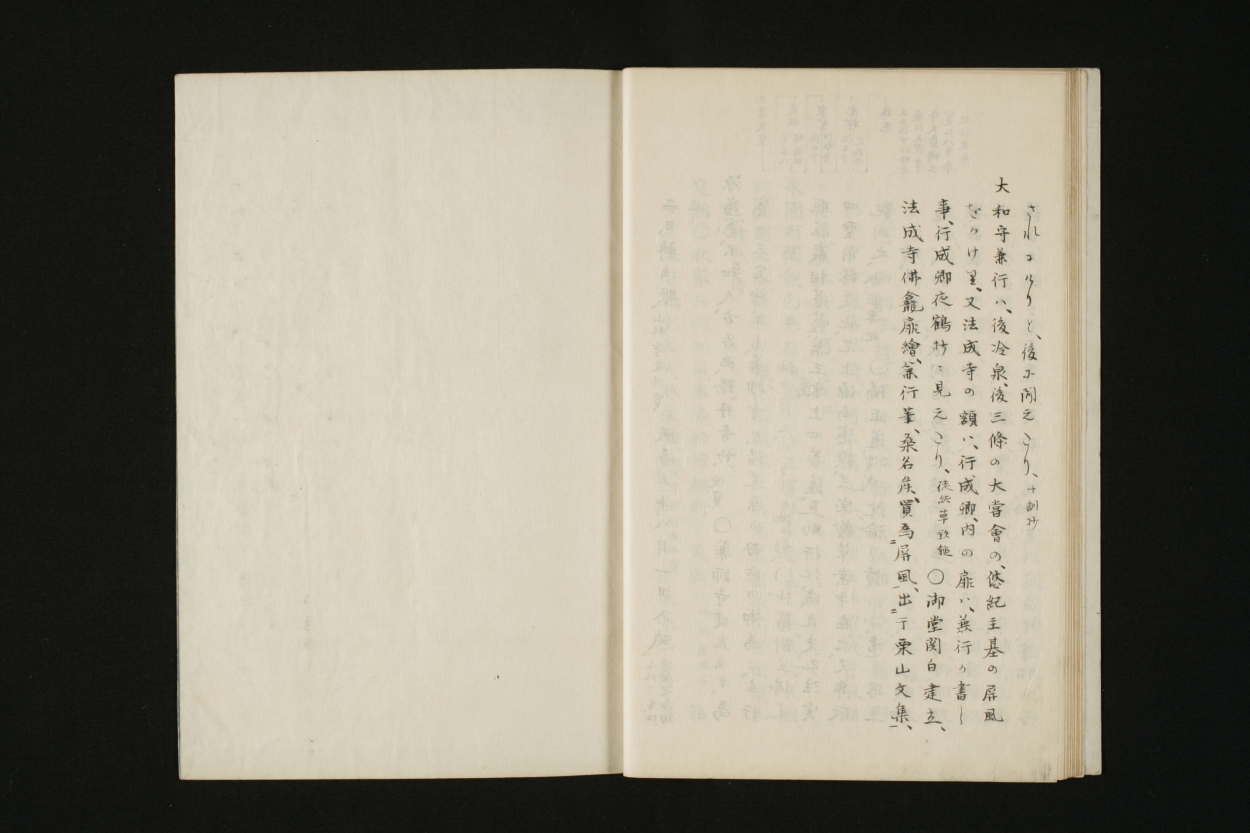 されたりと、後に聞えたり、十訓抄
大和守兼行ハ、後冷泉、後三條の大嘗會の、悠紀主基の屏風
をかけり、又法成寺の額ハ、行成卿、内の扉ハ、兼行が書し
事、行成卿夜鶴抄ニ見えたり、徒然草 〇御堂關白建立、
法成寺佛龕扉繪、兼行筆、桑名侯、買爲屏風、出于栗山文集、